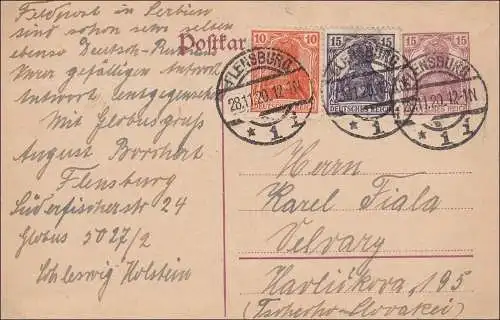 Feldpost in Serbien
sind schon sehr selten
ebenso Deutsch-
Ihrer gefälligen Antwort
Antwort entgegensehe
Mit Globusgruß
August Borchert
Flensburg
Süderfischerstr 24
Globus 5027/2
Schleswig Holstein
Postkar
10 10
15 15
15 15
DEUTSCHES REICH
FLENSBURG
28.11.20.12-1N
* 1 i
FLENSBURG
* 1 i
FLENSBURG
28.11.20.12-1N
* 1 i
Herrn
Karel Fiala
Velvary
Havličkova, 195
(Tschecho-Slovakei)